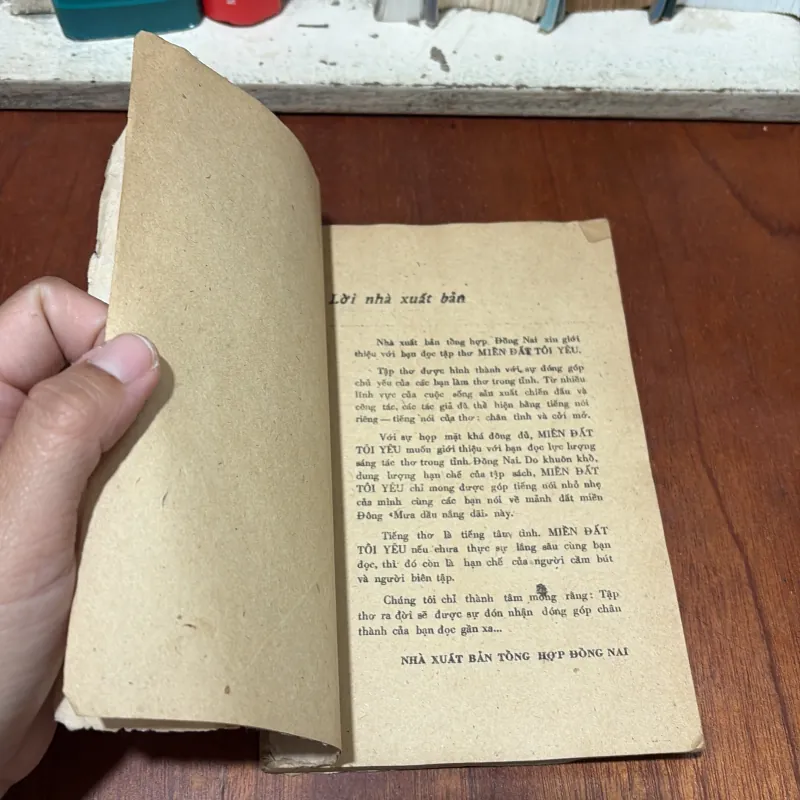 Lời nhà xuất bản
Nhà xuất bản tổng hợp Đồng Nai xin giới
thiệu với bạn đọc tập thơ MIỀN ĐẤT TÔI YÊU.
Tập thơ được hình thành với sự đóng góp
chủ yếu của các bạn làm thơ trong tỉnh. Từ nhiều
lĩnh vực của cuộc sống sản xuất chiến đấu và
công tác, các tác giả đã thể hiện bằng tiếng nói
riêng — tiếng nói của thơ: chân tình và cởi mở.
Với sự họp mặt khá đông đủ, MIỀN ĐẤT
TÔI YÊU muốn giới thiệu với bạn đọc lực lượng
sáng tác thơ trong tỉnh Đồng Nai. Do khuôn khổ,
dung lượng hạn chế của tập sách, MIỀN ĐẤT
TÔI YÊU chỉ mong được góp tiếng nói nhỏ nhẹ
của mình cùng các bạn nói về mãnh đất miền
Đông «Mưa dầu nắng dãi» này.
Tiếng thơ là tiếng tâm tình. MIỀN ĐẤT
TÔI YÊU nếu chưa thực sự lắng sâu cùng bạn
đọc, thì đó còn là hạn chế của người cầm bút
và người biên tập.
Chúng tôi chỉ thành tâm mong rằng: Tập
thơ ra đời sẽ được sự đón nhận đóng góp chân
thành của bạn đọc gần xa...
NHÀ XUẤT BẢN TỔNG HỢP ĐỒNG NAI